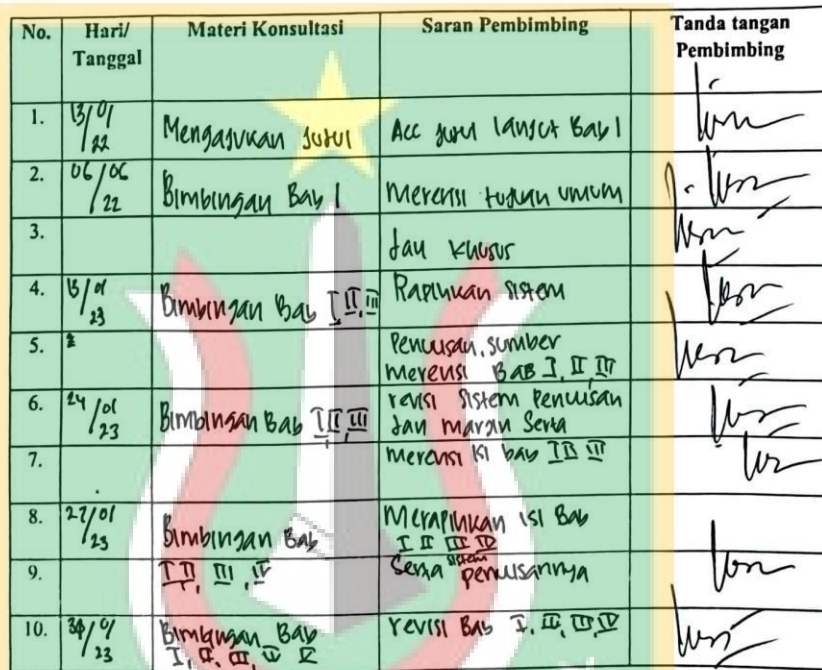 No. Hari/ Tanggal Materi Konsultasi Saran Pembimbing Tanda tangan Pembimbing
1. 13/01/22 Mengajukan Judul Acc judul lanjut Bab I
2. 06/06/22 Bimbingan Bab I Merevisi tujuan umum
3. dan khusus
4. 13/01/23 Bimbingan Bab I II, III Rapihkan sistem
5. Penulisan, sumber
merevisi BAB I, II, III
6. 24/01/23 Bimbingan Bab I II, III revisi sistem penulisan
dan margin serta
7. merevisi isi bab I II III
8. 27/01/23 Bimbingan Bab Merapihkan isi Bab
I II III IV
9. I II, III, IV Serta sistem penulisannya
10. 30/01/23 Bimbingan Bab revisi Bab I, II, III, IV
I, II, III, IV V